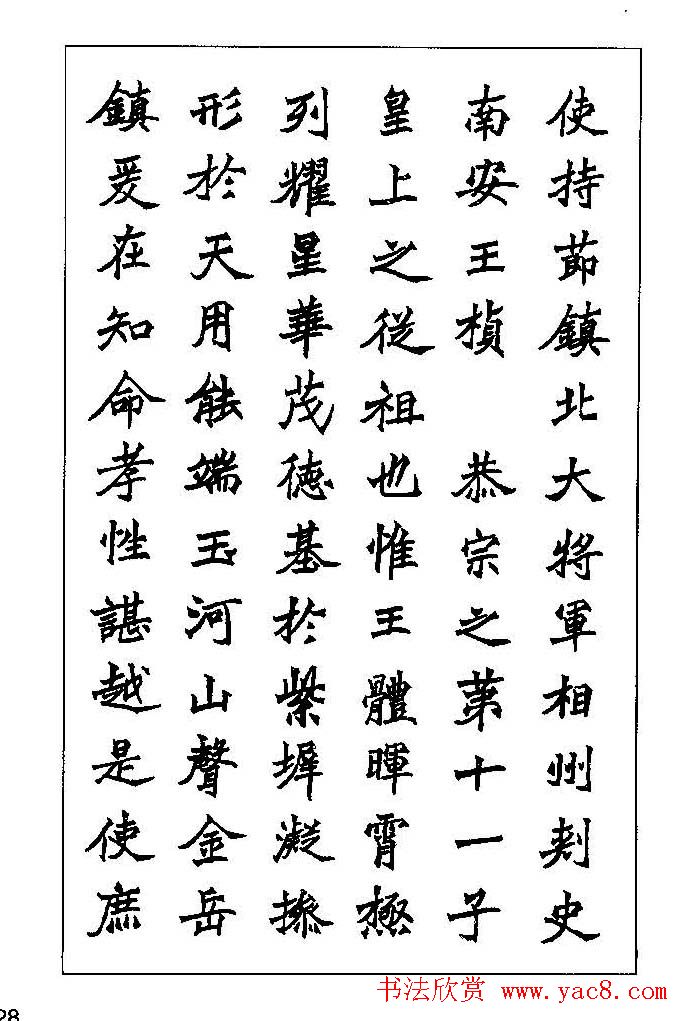 使持節鎮北大將軍相州刺史
南安王楨 恭宗之第十一子
皇上之從祖也惟王體暉霄極
列耀星華茂德基於紫墀凝操
形於天用能端玉河山聲金岳
鎮爰在知命孝性諶越是使庶
书法欣赏 www.yac8.com
28